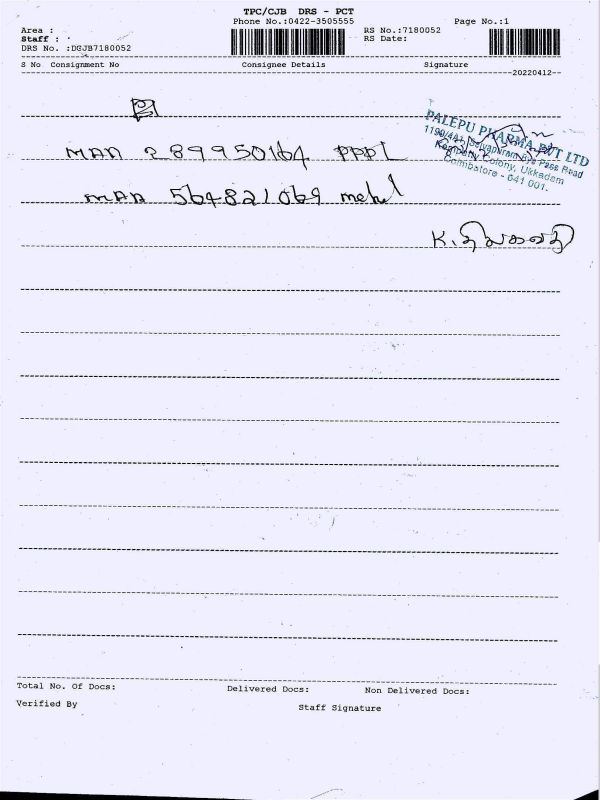 TPC/CJB DRS - PCT
Phone No.:0422-3505555
Page No.:1
Area :
Staff :
DRS No. :DGJB7180052
RS No.:7180052
RS Date:
S No Consignment No Consignee Details Signature
20220412
MAA 289950164 PPPL
PALEPU PHARMA PVT LTD
1199/4A1, Selvapuram Bye Pass Road
Colony, Ukkadam
Coimbatore - 641 001.
MAA 564821069
K.
Total No. Of Docs: Delivered Docs: Non Delivered Docs:
Verified By Staff Signature